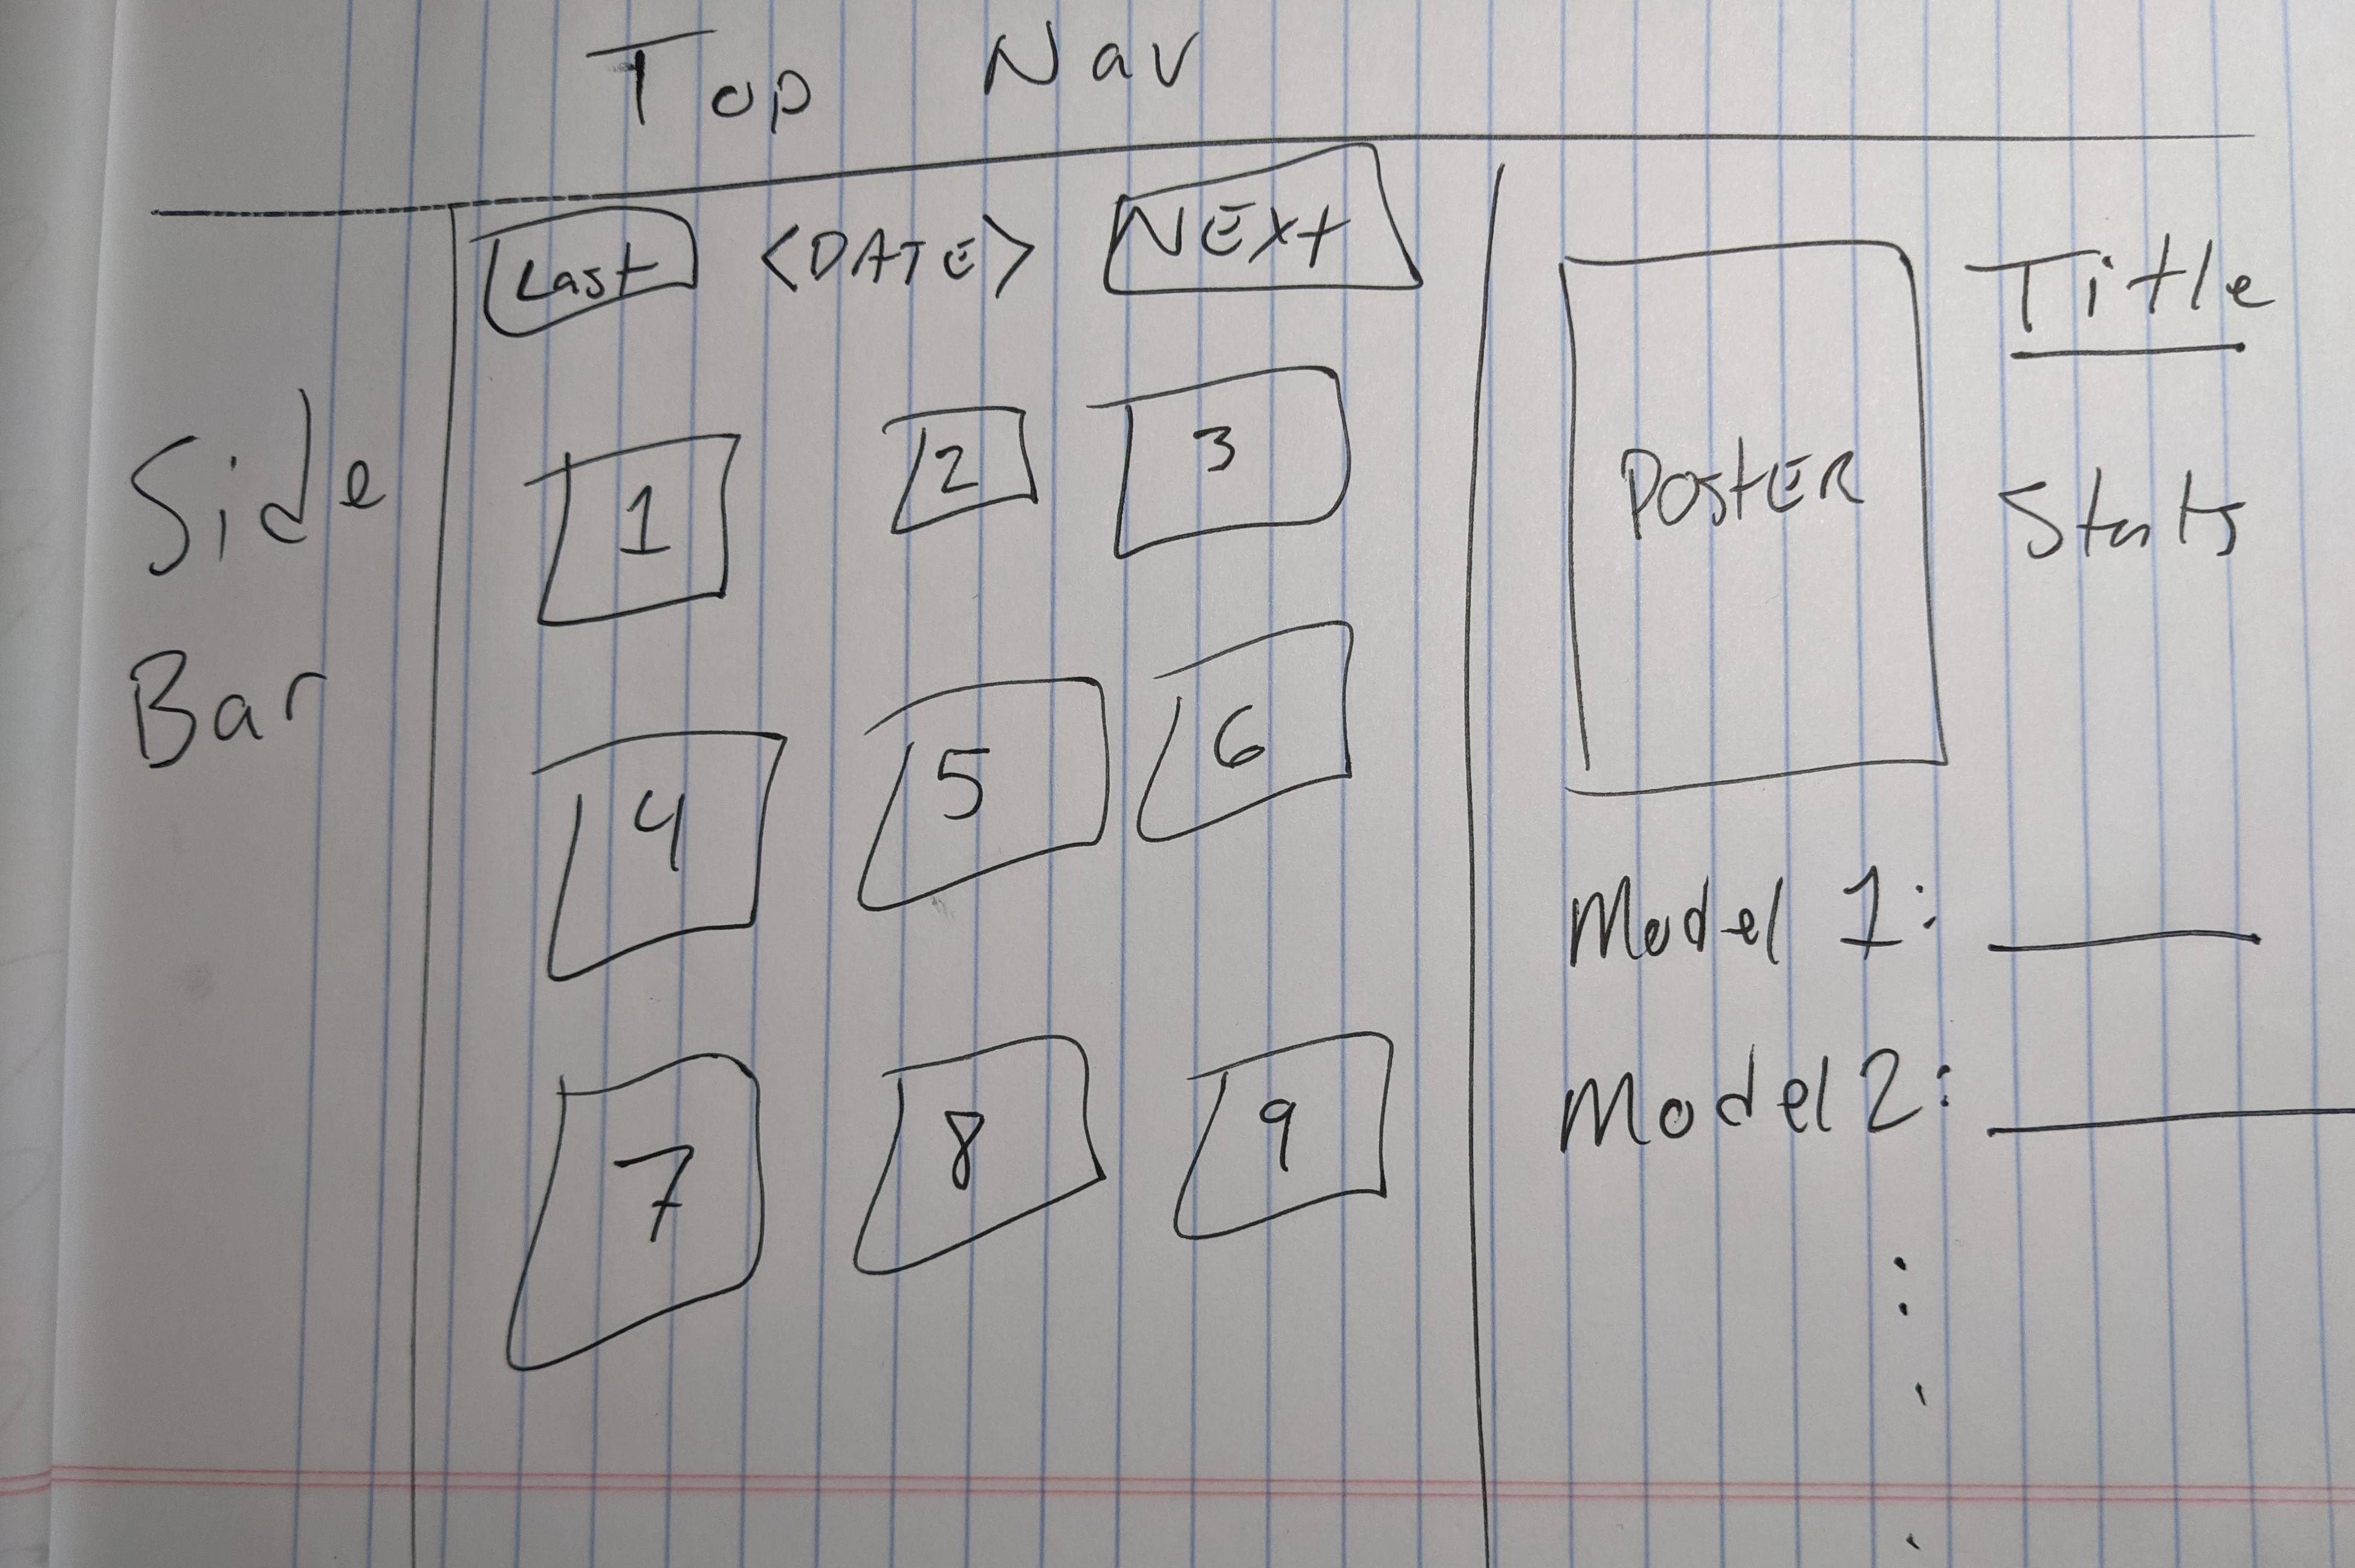 Top Nav
Side
Bar
Last <DATE> NEXt
1 2 3
4 5 6
7 8 9
POStER
Title
Stats
Model 1:
Model 2: